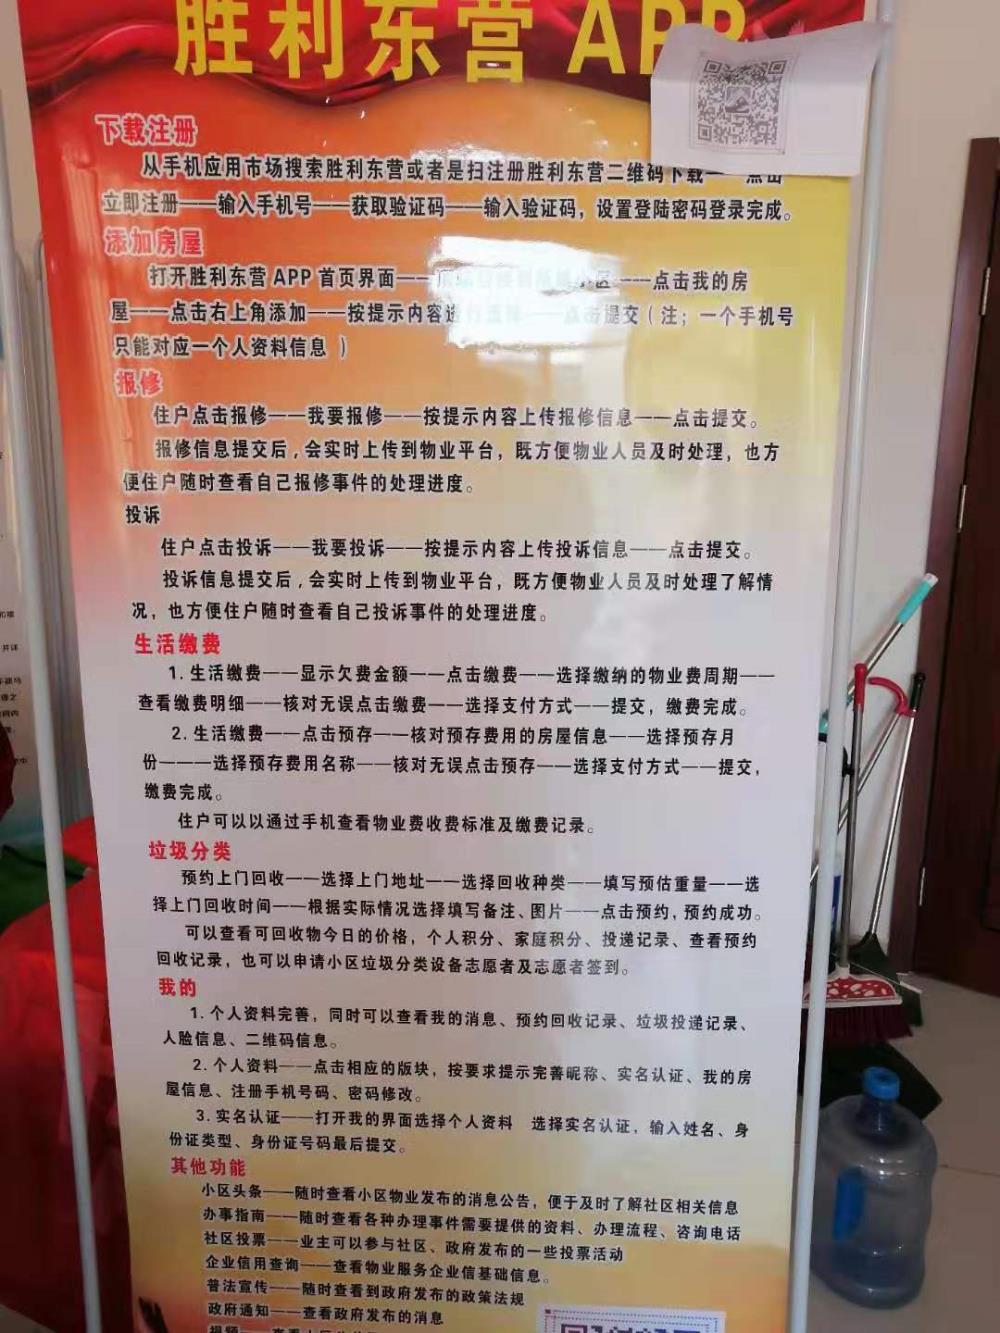 胜利东营 APP
下载注册
从手机应用市场搜索胜利东营或者是扫注册胜利东营二维码下载——点击
立即注册——输入手机号——获取验证码——输入验证码，设置登陆密码登录完成。
添加房屋
打开胜利东营 APP 首页界面—— 小区——点击我的房
屋——点击右上角添加——按提示内容进行选择——点击提交（注；一个手机号
只能对应一个人资料信息 ）
报修
住户点击报修——我要报修——按提示内容上传报修信息——点击提交。
报修信息提交后，会实时上传到物业平台，既方便物业人员及时处理，也方
便住户随时查看自己报修事件的处理进度。
投诉
住户点击投诉——我要投诉——按提示内容上传投诉信息——点击提交。
投诉信息提交后，会实时上传到物业平台，既方便物业人员及时处理了解情
况，也方便住户随时查看自己投诉事件的处理进度。
生活缴费
1. 生活缴费——显示欠费金额——点击缴费——选择缴纳的物业费周期——
查看缴费明细——核对无误点击缴费——选择支付方式——提交，缴费完成。
2. 生活缴费——点击预存——核对预存费用的房屋信息——选择预存月
份———选择预存费用名称——核对无误点击预存——选择支付方式——提交，
缴费完成。
住户可以以通过手机查看物业费收费标准及缴费记录。
垃圾分类
预约上门回收——选择上门地址——选择回收种类——填写预估重量——选
择上门回收时间——根据实际情况选择填写备注、图片——点击预约，预约成功。
可以查看可回收物今日的价格，个人积分、家庭积分、投递记录、查看预约
回收记录，也可以申请小区垃圾分类设备志愿者及志愿者签到。
我的
1. 个人资料完善，同时可以查看我的消息、预约回收记录、垃圾投递记录、
人脸信息、二维码信息。
2. 个人资料——点击相应的版块，按要求提示完善昵称、实名认证、我的房
屋信息、注册手机号码、密码修改。
3. 实名认证——打开我的界面选择个人资料 选择实名认证，输入姓名、身
份证类型、身份证号码最后提交。
其他功能
小区头条——随时查看小区物业发布的消息公告，便于及时了解社区相关信息
办事指南——随时查看各种办理事件需要提供的资料、办理流程、咨询电话
社区投票——业主可以参与社区、政府发布的一些投票活动
企业信用查询——查看物业服务企业信基础信息。
普法宣传——随时查看到政府发布的政策法规
政府通知——查看政府发布的消息